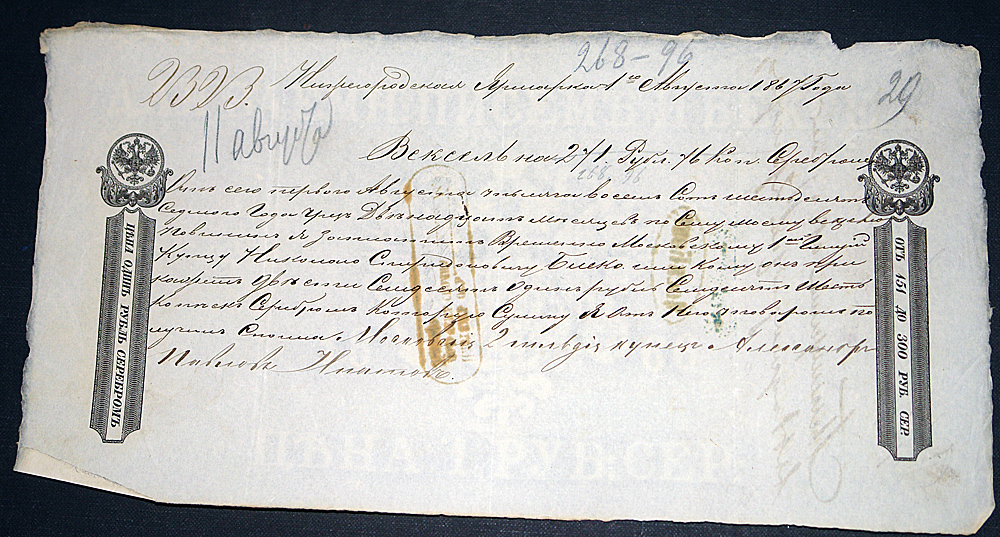 268-96
Нижегородская Ярмарка 1го Августа 1867 Года
29
11 августа
Вексель на 271. Рубл. 76 Коп. Серебромъ
268 96
Отъ сего перваго Августа тысяча восемь сотъ шестьдесятъ
Седьмого Года Чрезъ Двенадцать месяцевъ по Сему Моему векселю
Повиненъ Я Заплатить Временно Московскому 1й Гильдіи
Купцу Николаю Спиридоновичу или кому онъ при
кажетъ Двести Семдесятъ Одинъ рубль Семдесятъ Шесть
копеекъ Серебромъ Которую Сумму Я Отъ Него товаромъ по
лучилъ Сполна Московскій 2 гильдіи купецъ Александръ
Павловъ
ЦѢНА ОДИНЪ РУБЛЬ СЕРЕБРОМЪ
ОТЪ 151 ДО 300 РУБ. СЕР.